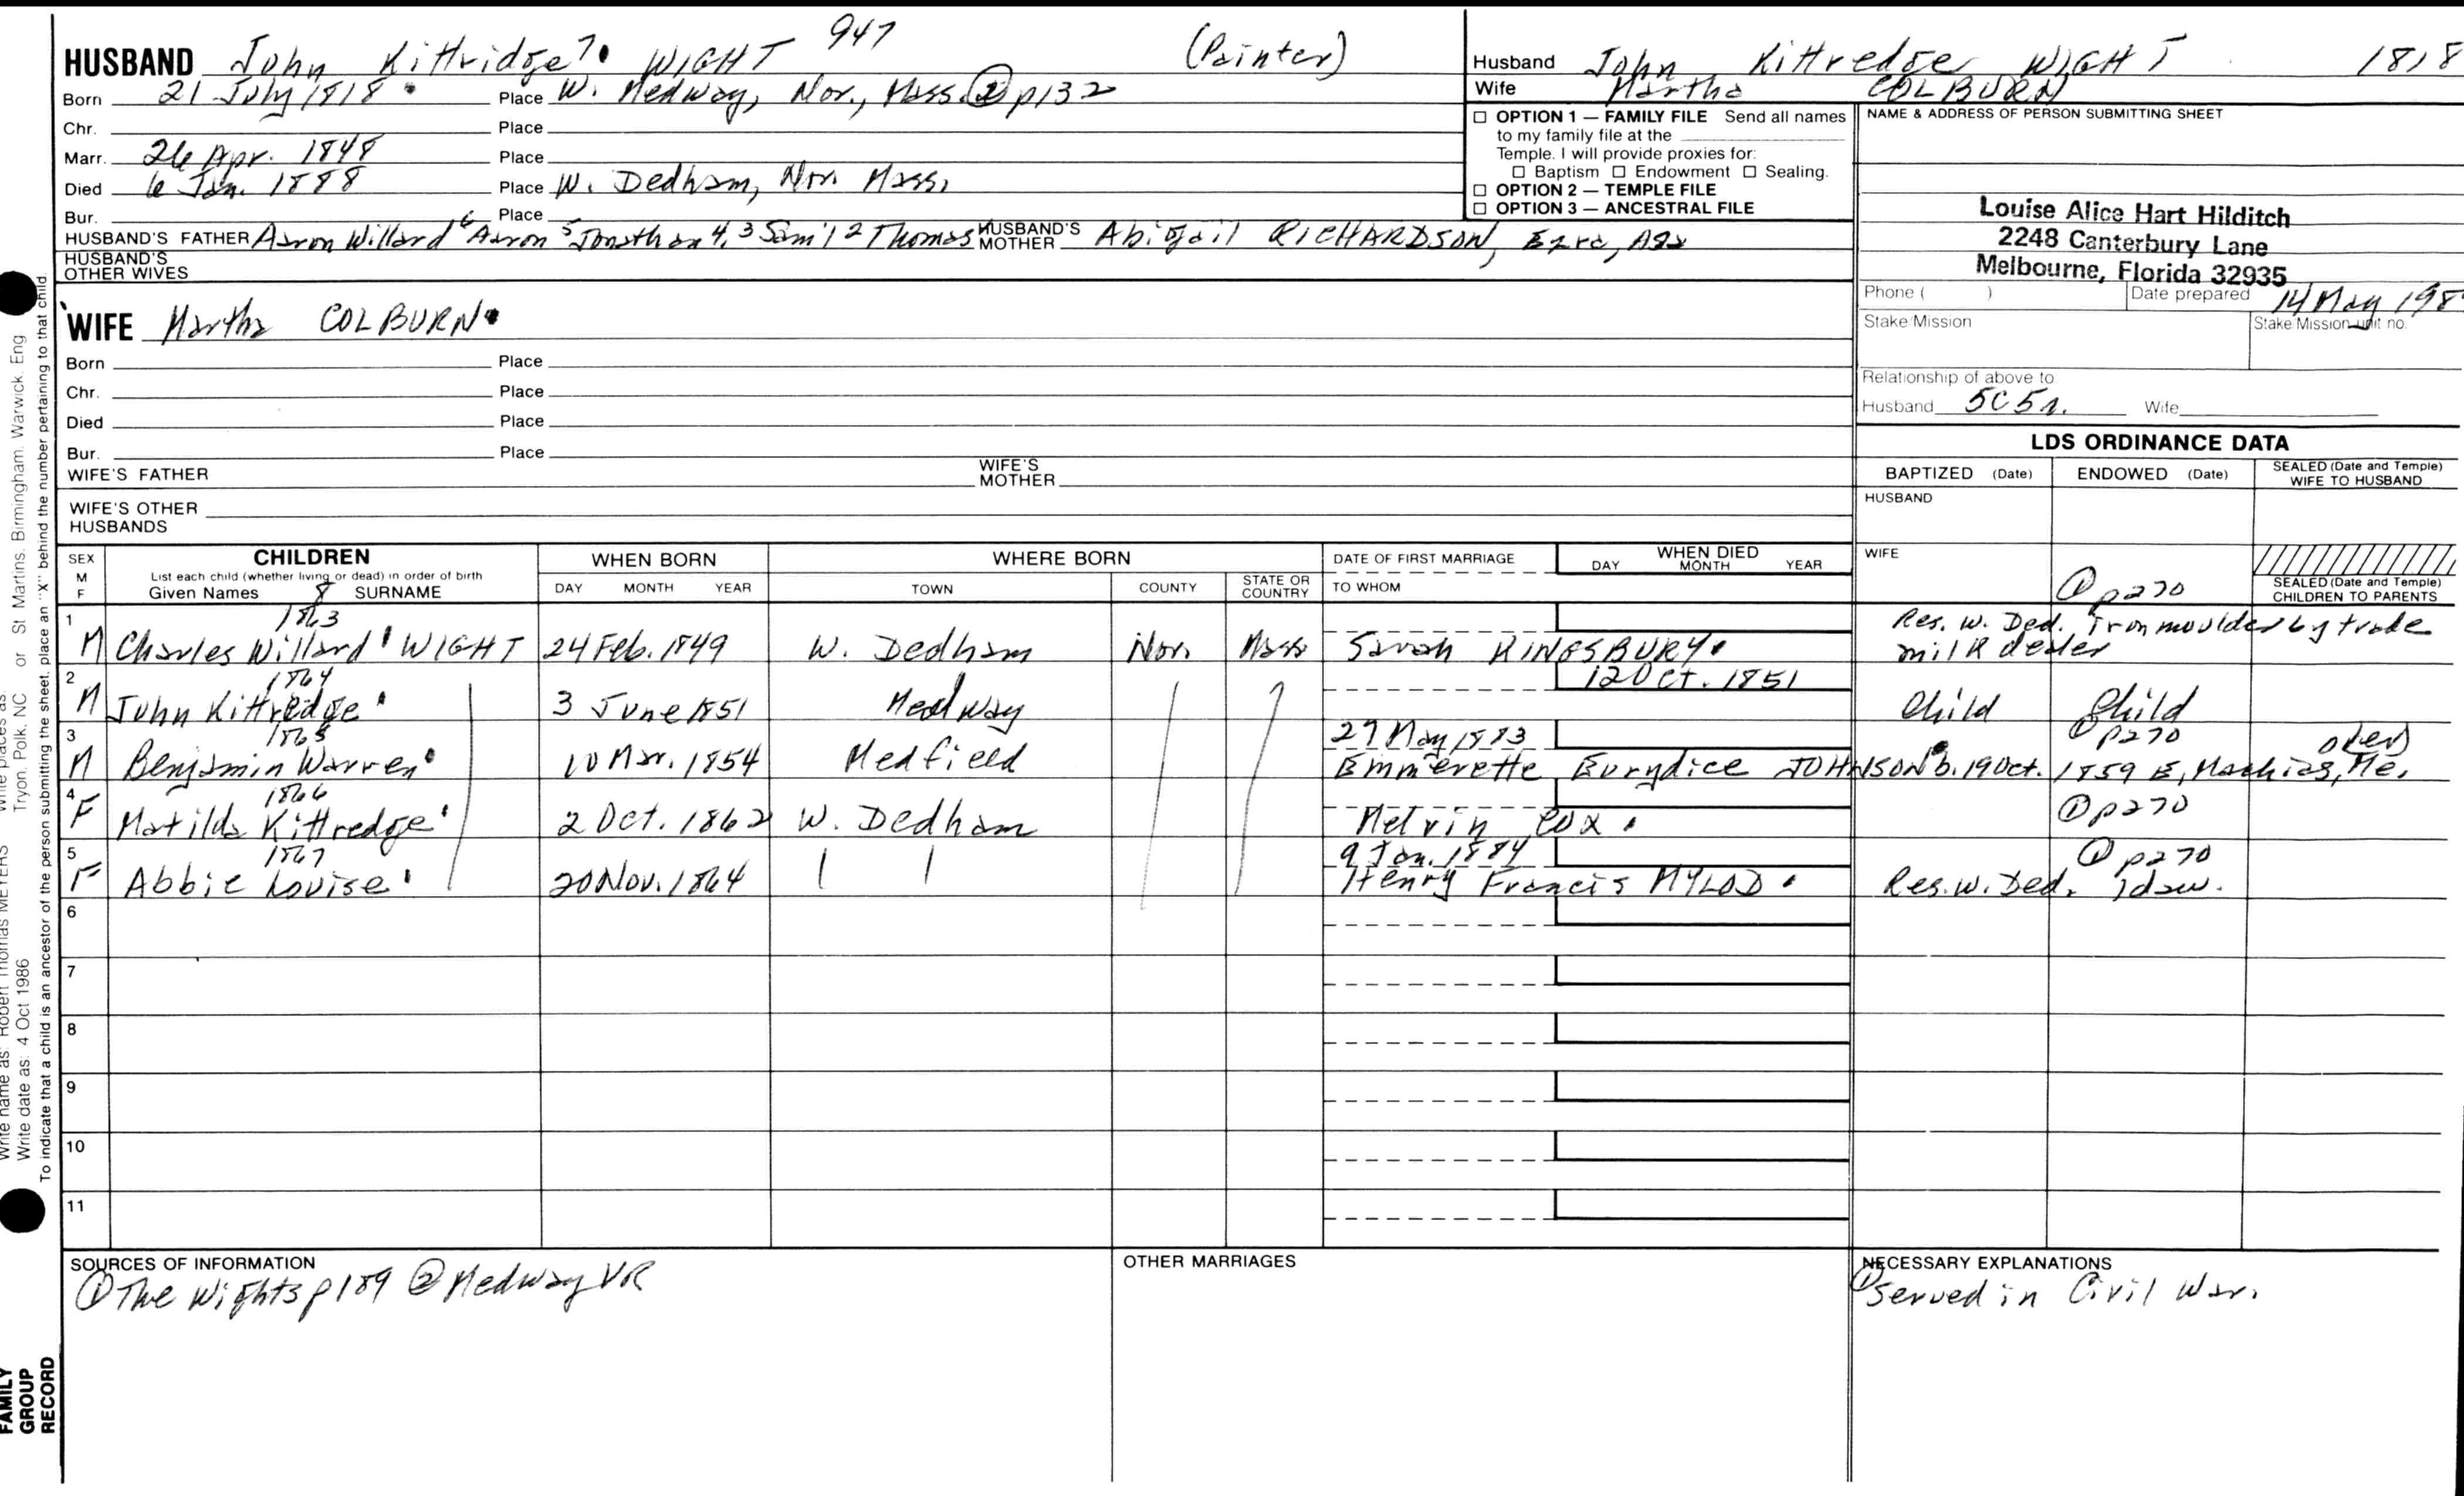 HUSBAND John Kittridge 7. WIGHT 947 (Painter)
Born 21 July 1818 Place W. Medway, Nor., Mass. ② p132
Chr. Place
Marr. 26 Apr. 1848 Place
Died 6 Jan. 1888 Place W. Dedham, Nor. Mass.
Bur. Place
HUSBAND'S FATHER Aaron Willard 6 Aaron 5 Jonathan 4, 3 Sam'l 2 Thomas HUSBAND'S MOTHER Abigail RICHARDSON, Ezra, Asa
HUSBAND'S OTHER WIVES
WIFE Martha COLBURN
Born Place
Chr. Place
Died Place
Bur. Place
WIFE'S FATHER WIFE'S MOTHER
WIFE'S OTHER HUSBANDS
Husband John Kittredge WIGHT 1818
Wife Martha COLBURN
☐ OPTION 1 — FAMILY FILE Send all names
to my family file at the
Temple. I will provide proxies for:
☐ Baptism ☐ Endowment ☐ Sealing.
☐ OPTION 2 — TEMPLE FILE
☐ OPTION 3 — ANCESTRAL FILE
NAME & ADDRESS OF PERSON SUBMITTING SHEET
Louise Alice Hart Hilditch
2248 Canterbury Lane
Melbourne, Florida 32935
Phone ( ) Date prepared 14 May 198
Stake/Mission Stake/Mission unit no.
Relationship of above to
Husband 5C5r. Wife
LDS ORDINANCE DATA
BAPTIZED (Date) ENDOWED (Date) SEALED (Date and Temple) WIFE TO HUSBAND
HUSBAND
WIFE
① p270
SEALED (Date and Temple) CHILDREN TO PARENTS
SEX M F CHILDREN WHEN BORN WHERE BORN DATE OF FIRST MARRIAGE WHEN DIED
List each child (whether living or dead) in order of birth
Given Names 8 SURNAME DAY MONTH YEAR TOWN COUNTY STATE OR COUNTRY TO WHOM DAY MONTH YEAR
1 1863
M Charles Willard WIGHT 24 Feb. 1849 W. Dedham Nor. Mass Sarah KINGSBURY Res. W. Ded. iron moulder by trade
milk dealer
2 1864 12 Oct. 1851
M John Kittredge 3 June 1851 Medway Child Child
3 1865 29 May 1883 ① p270
M Benjamin Warren 10 Mar. 1854 Medfield Emmerette Eurydice JOHNSON b. 19 Oct. 1859 E, Machias, Me.
4 1866
F Matilda Kittredge 2 Oct. 1862 W. Dedham Melvin COX ① p270
5 1867 9 Jan. 1884 ① p270
F Abbie Louise 20 Nov. 1864 Henry Francis MYLOD Res. W. Ded. 1daw.
6
7
8
9
10
11
SOURCES OF INFORMATION
① The Wights p189 ② Medway VR
OTHER MARRIAGES
NECESSARY EXPLANATIONS
① Served in Civil War.
Tryon, Polk, NC or St Martins, Birmingham, Warwick, Eng
Write name as: Robert Thomas MEYERS Write places as
Write date as: 4 Oct 1986
To indicate that a child is an ancestor of the person submitting the sheet, place an "X" behind the number pertaining to that child
FAMILY
GROUP
RECORD